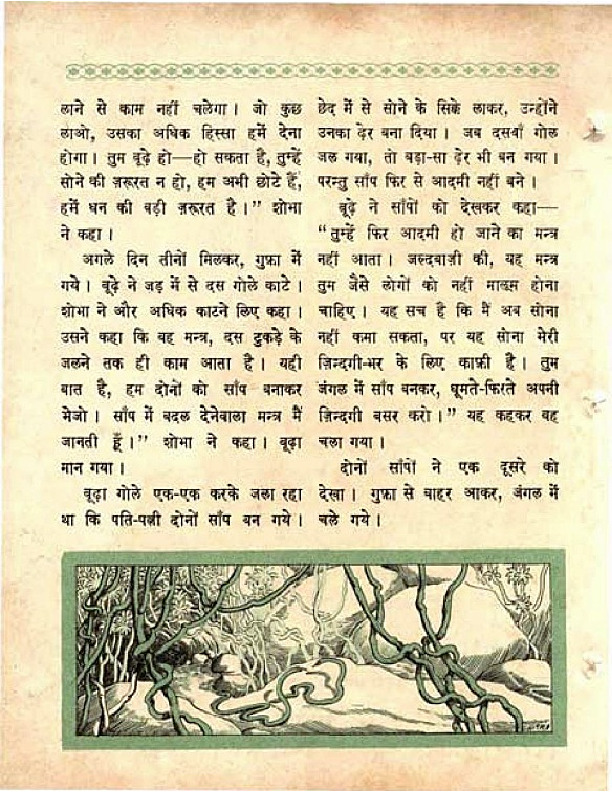 लाने से काम नहीं चलेगा। जो कुछ
लाओ, उसका अधिक हिस्सा हमें देना
होगा। तुम बूढ़े हो—हो सकता है, तुम्हें
सोने की ज़रूरत न हो, हम अभी छोटे हैं,
हमें धन की बड़ी ज़रूरत है।” शोभा
ने कहा।
अगले दिन तीनों मिलकर, गुफ़ा में
गये। बूढ़े ने जड़ में से दस गोले काटे।
शोभा ने और अधिक काटने लिए कहा।
उसने कहा कि वह मन्त्र, दस टुकड़े के
जलने तक ही काम आता है। यही
बात है, हम दोनों को साँप बनाकर
भेजो। साँप में बदल देनेवाला मन्त्र मैं
जानती हूँ।” शोभा ने कहा। बूढ़ा
मान गया।
बूढ़ा गोले एक-एक करके जला रहा
था कि पति-पत्नी दोनों साँप बन गये।
छेद में से सोने के सिक्के लाकर, उन्होंने
उनका ढ़ेर बना दिया। जब दसवाँ गोल
जल गया, तो बड़ा-सा ढ़ेर भी बन गया।
परन्तु साँप फिर से आदमी नहीं बने।
बूढ़े ने साँपों को देखकर कहा—
“तुम्हें फिर आदमी हो जाने का मन्त्र
नहीं आता। जल्दबाज़ी की, यह मन्त्र
तुम जैसे लोगों को नहीं मालूम होना
चाहिए। यह सच है कि मैं अब सोना
नहीं कमा सकता, पर यह सोना मेरी
ज़िन्दगी-भर के लिए काफ़ी है। तुम
जंगल में साँप बनकर, घूमते-फिरते अपनी
ज़िन्दगी बसर करो।” यह कहकर वह
चला गया।
दोनों साँपों ने एक दूसरे को
देखा। गुफ़ा से बाहर आकर, जंगल में
चले गये।